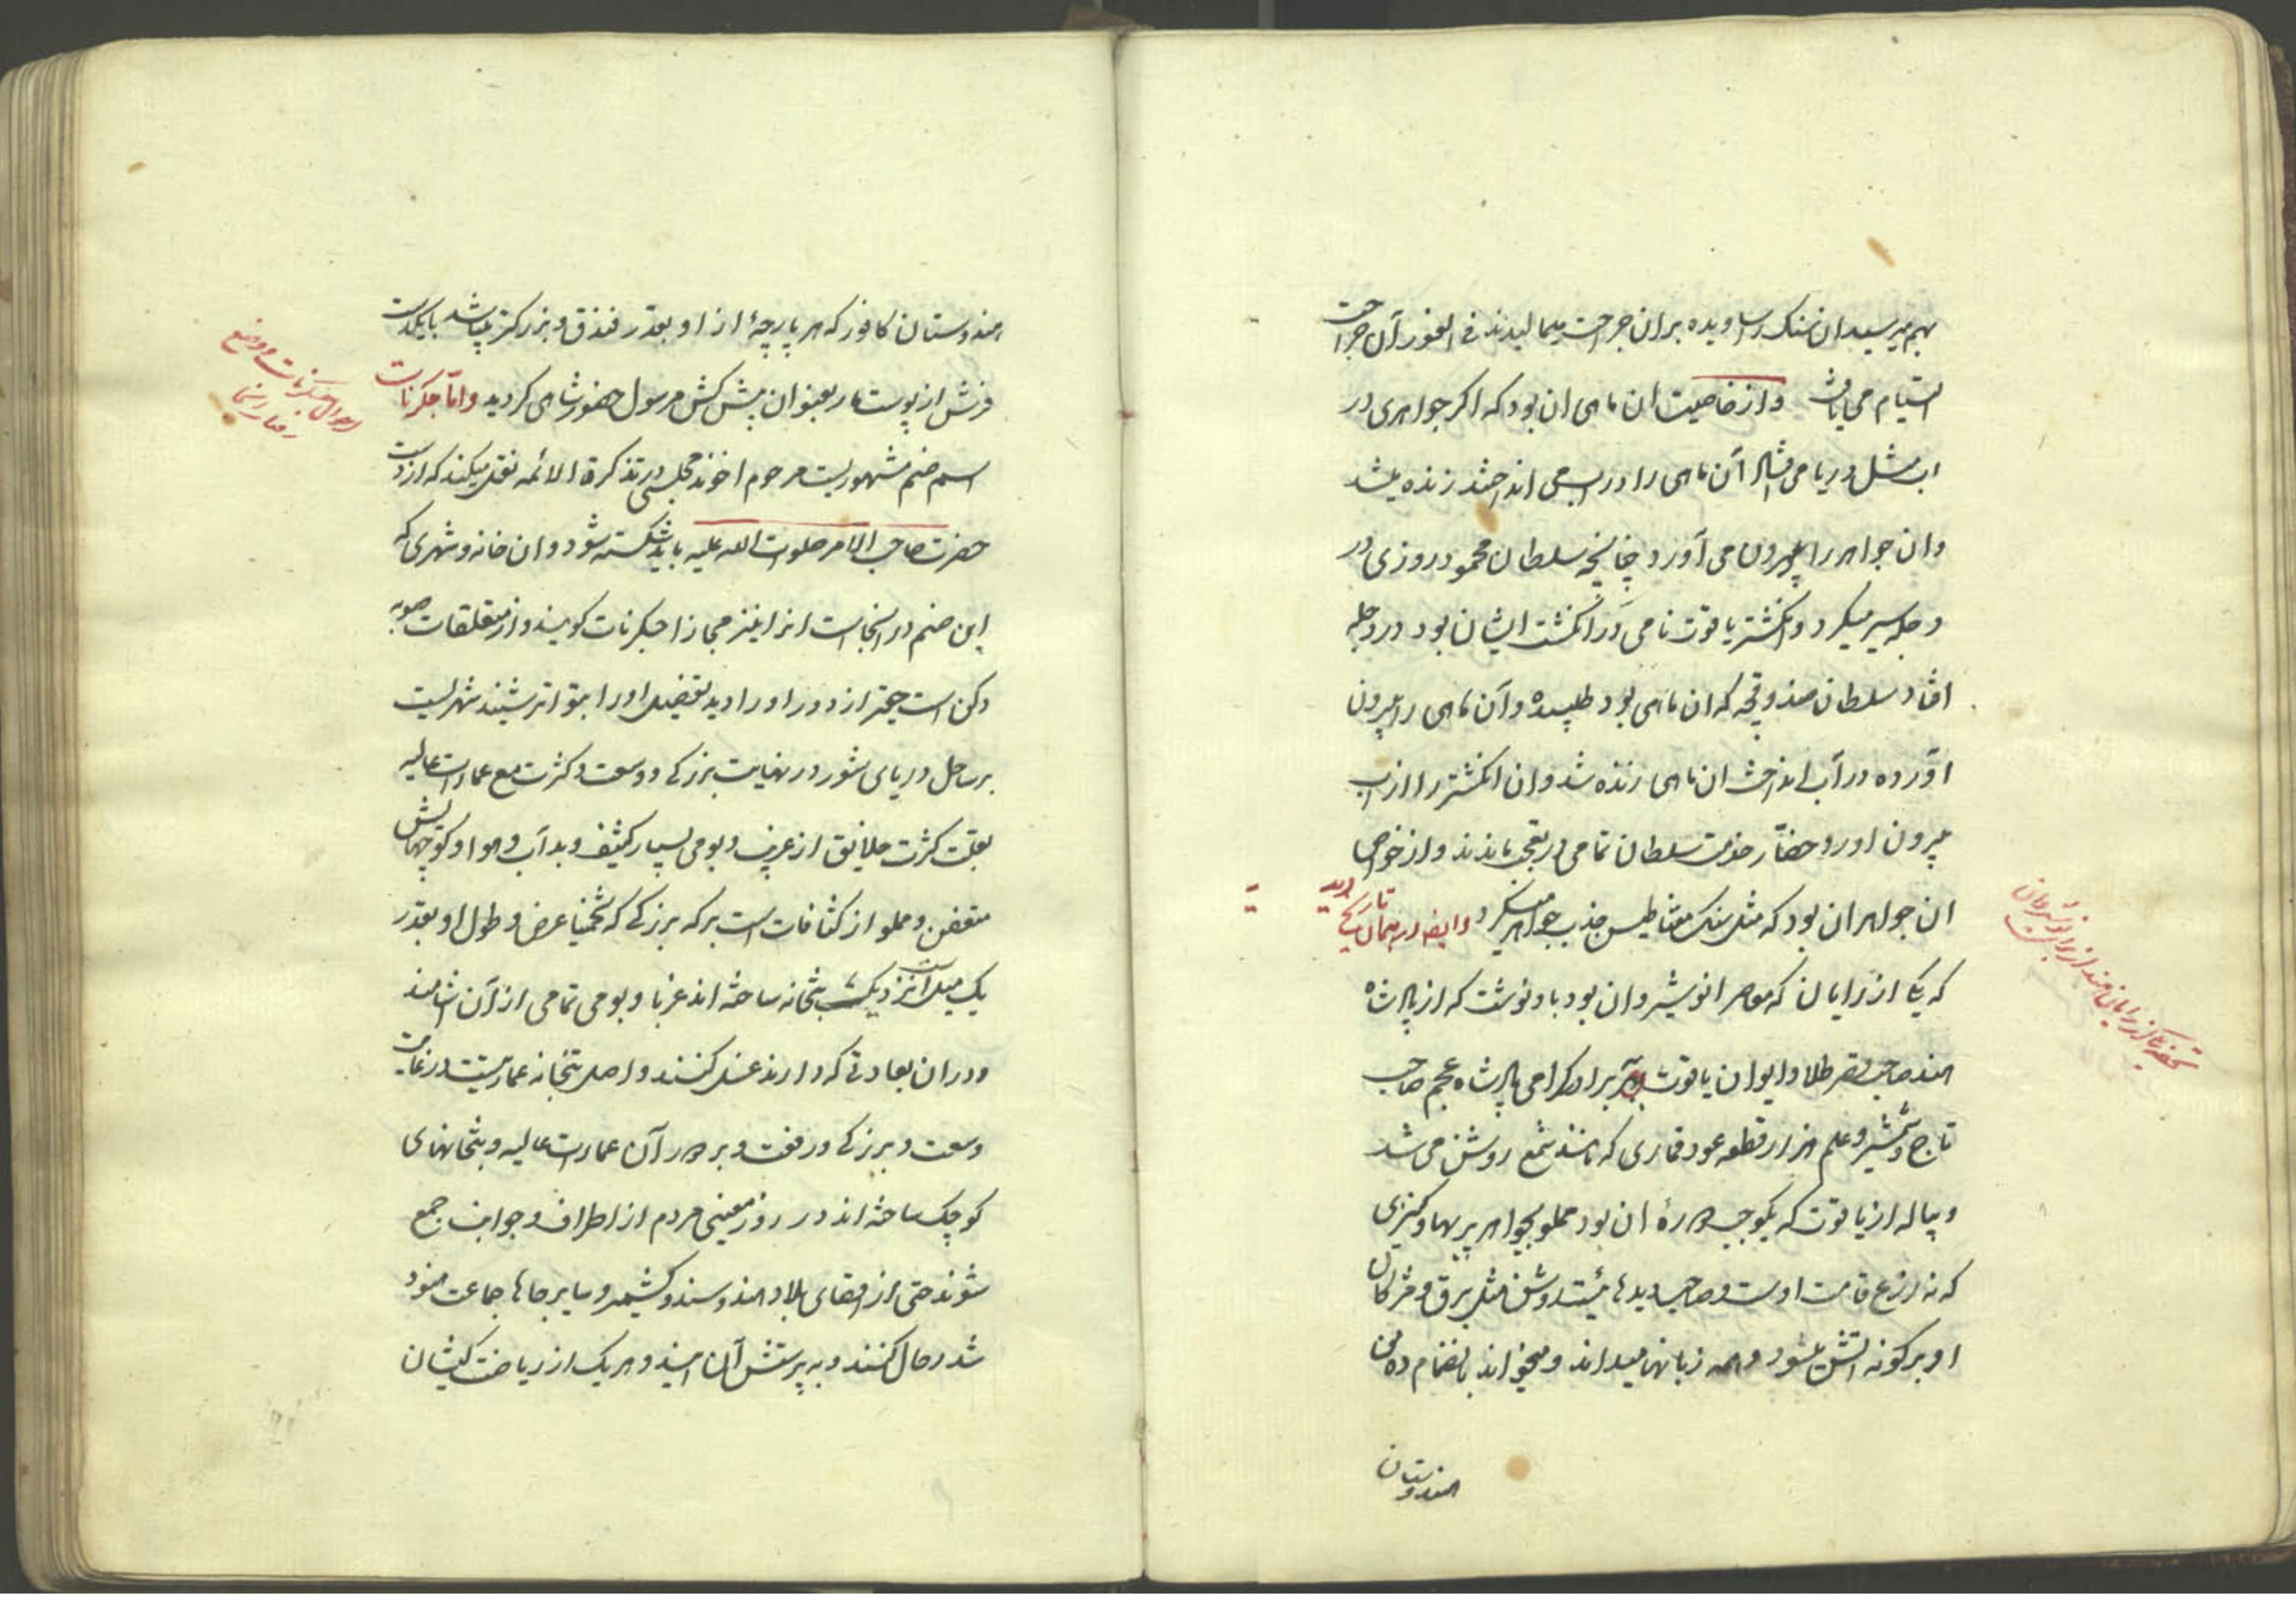 بهم میرسید ان سنک را ساویده بران جراحت میمالیدند فی الفور آن جراحت
التیام می یافت و از خاصیت ان ماهی ان بود که اکر جواهری در
اب مثل دریا می افتاد آن ماهی را در اب می انداختند زنده میشد
و ان جواهر را بیرون می آورد چنانچه سلطان محمود روزی در
دجله سیر میکرد و انکشتر یاقوت نامی در انکشت ایشان بود در دجله
افتاد سلطان صندوقچه که ان ماهی بود طلبیده و آن ماهی را بیرون
آورده در آب انداخت ان ماهی زنده شد و ان انکشتر را از اب
بیرون اورد حضار خدمت سلطان تمامی در تعجب ماندند و از خواص
ان جواهر ان بود که مثل سنک مغناطیس جذب جواهر میکرد و ایضا در همان تاریخ دیده
که یکی از رایان که معاصر انوشیروان بود باو نوشت که از پادشاه
هند صاحب قصر طلا و ایوان یاقوت و در برادر کرامی پادشاه عجم صاحب
تاج و شمشیر و علم هزار قطعه عود قماری که مانند شمع روشن می شد
و پیاله از یاقوت که یکوجب دوره ان بود مملو بجواهر پر بها و کنیزی
که نه ذرع قامت اوست و صاحب دیدهائیست روشن مثل برق و مژکان
او بر کونه اش میسود و همه زبانها میداند و میخواند بانضمام ده من
هندوستان
تحفه یکی از رایان هند از برای نوشیروان
هندوستان کافور که هر پارچهٔ از او بقدر فندق و بزرکتر میباشد با یکدست
فرش از پوست مار بعنوان پیش کش مرسول حضور شاهی کردید و اما جکرنات
اسم صنم مشهوریست مرحوم اخوند مجلسی در تذکرة الائمه نقل میکند که از دست
حضرت صاحب الامر صلوت الله علیه باید شکسته شود و ان خانه و شهری که
این صنم در انجاست انرا نیز مجازا جکرنات کویند و از متعلقات صوبه
دکن است حقیر از دور او را دید تفصیل او را بتواتر شنید شهریست
بر ساحل دریای شور در نهایت بزرکی و وسعت و کثرت مع عمارات عالیه
بعلت کثرت خلایق از غریب و بومی بسیار کثیف و بد آب و هوا و کوچهایش
متعفن و مملو از کثافات است برکه بزرکی که تخمینا عرض و طول او بقدر
یک میل است نزدیک بتخانه ساخته اند غربا و بومی تمامی از آن اشامند
و در ان بعادتی که دارند غسل کنند و اصل بتخانه عمارتیست در غایت
وسعت و بزرکی و رفعت و بر دور آن عمارات عالیه و بتخانهای
کوچک ساخته اند در روز معینی مردم از اطراف و جوانب جمع
شوند حتی از اقصای بلاد هند و سند و کشمیر و سایر جاها جماعت هنود
شد رحال کنند و به پرستش آن ایند و هر یک از ریاضت کیشان
احوال جکرنات و وضع